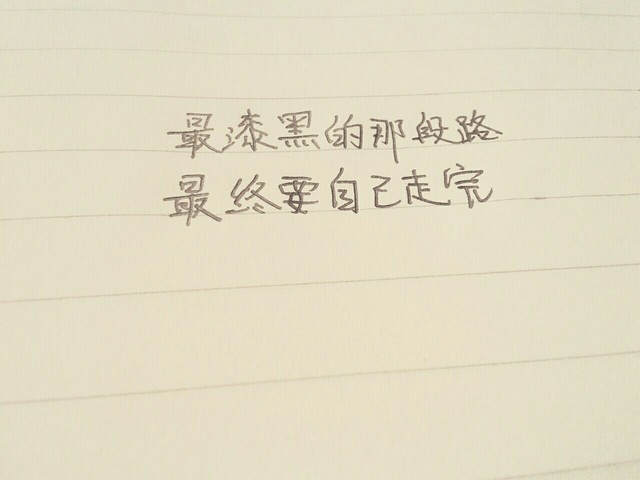 最漆黑的那段路
最终要自己走完